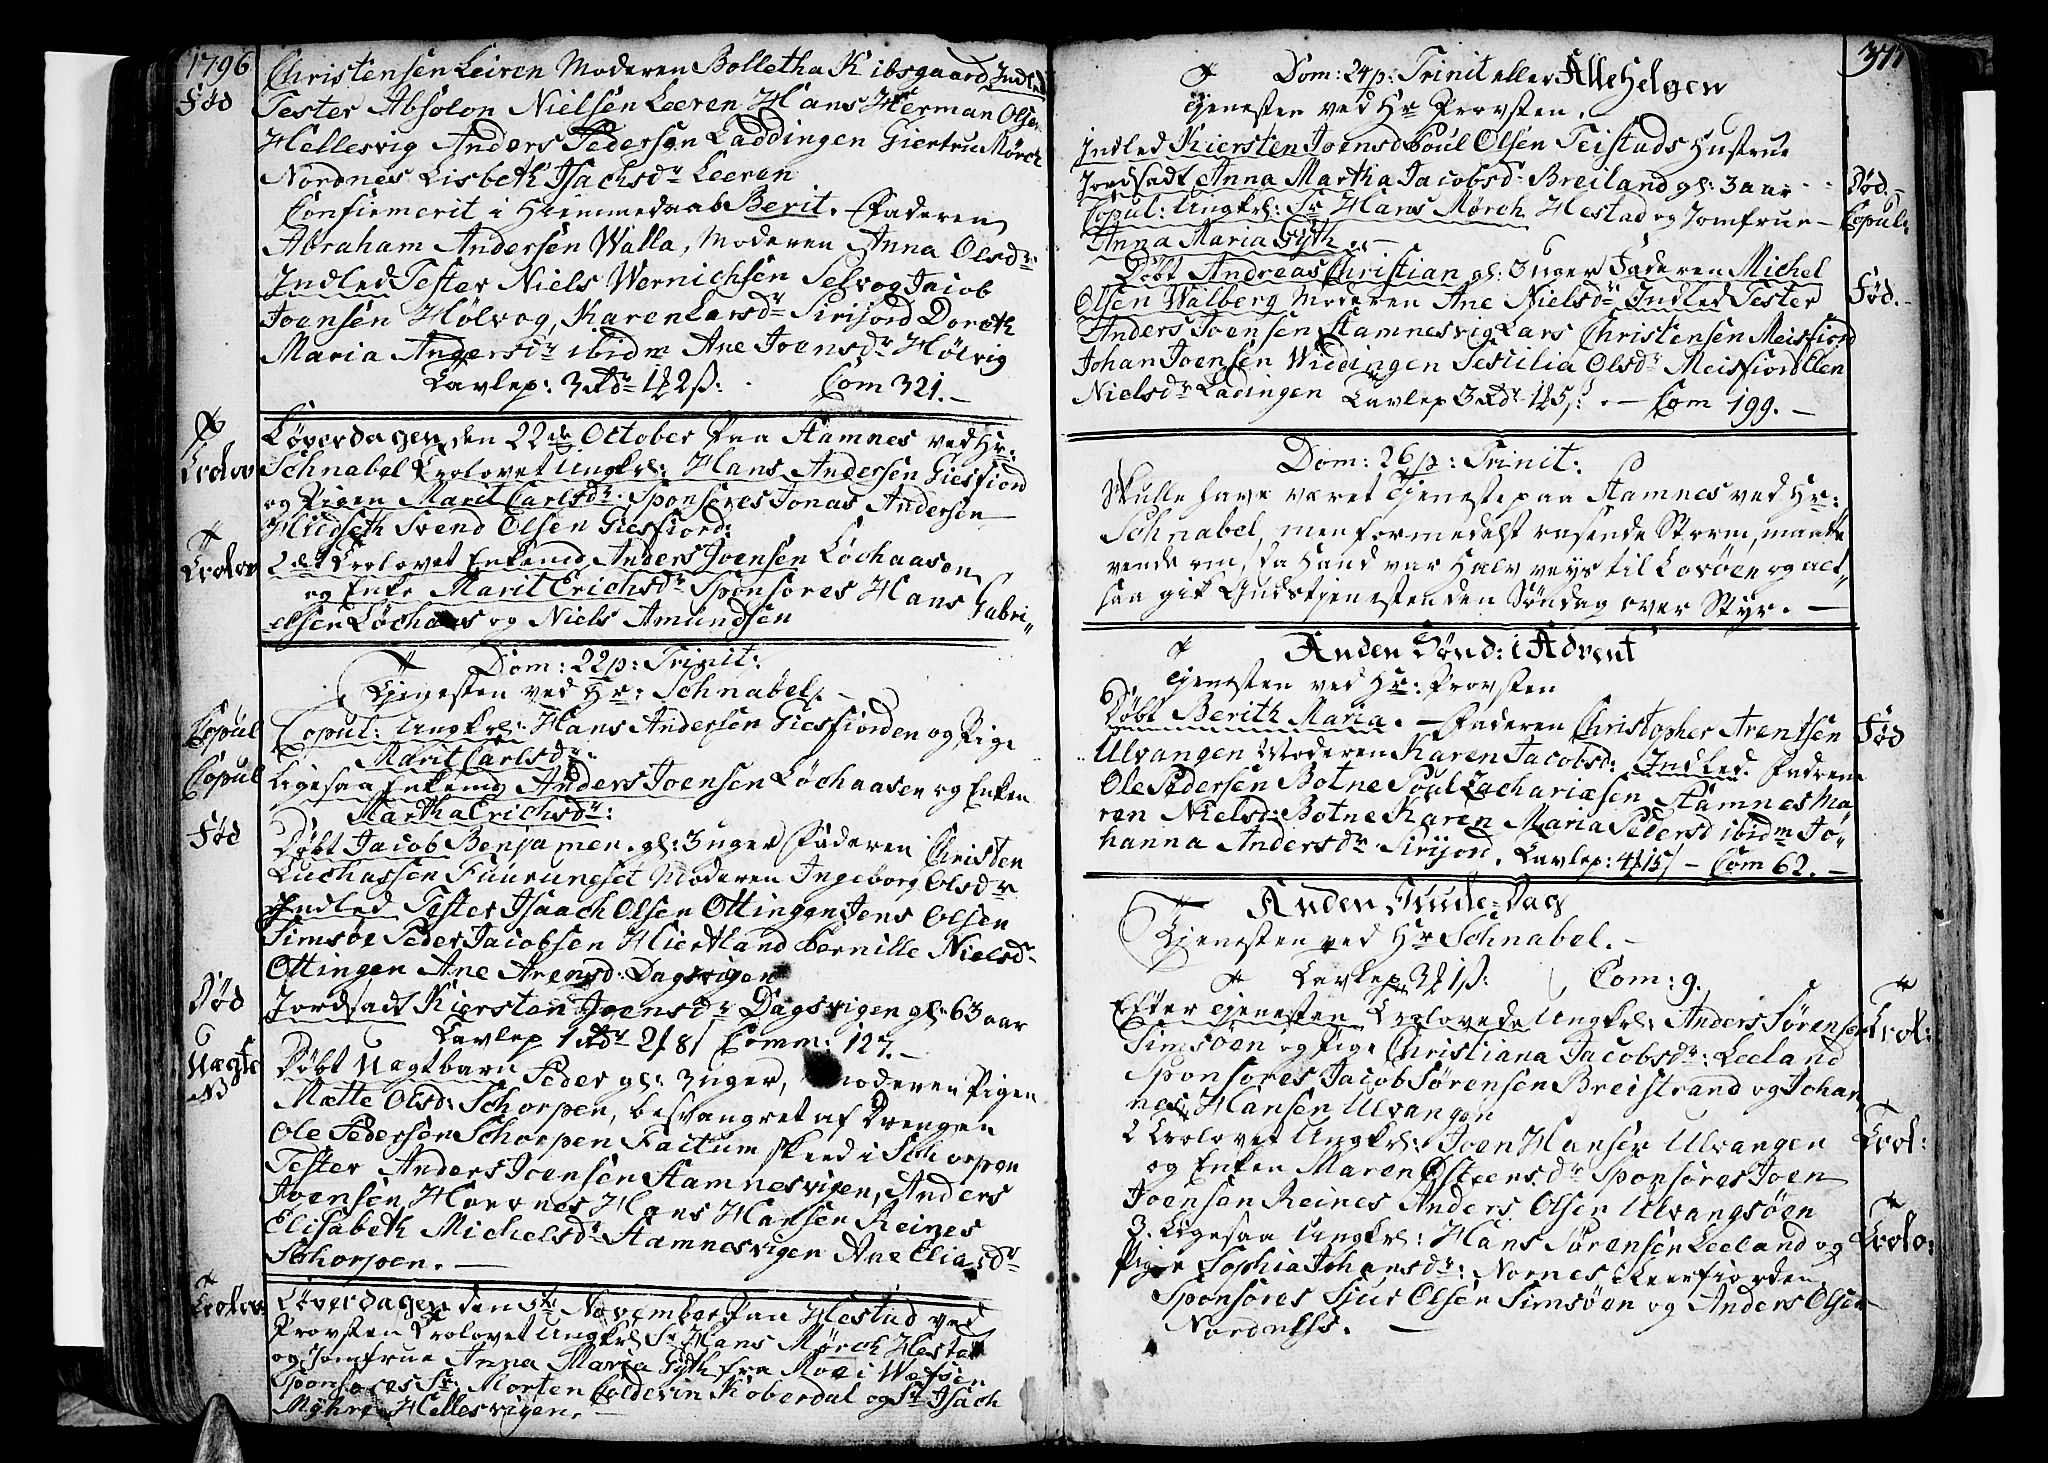 1796
Christensen Leiren Moderen Bolletha Kibsgaard Indled
Fød
Tester Absolon Nielsen Leeren Hans Herman Olsen
Hellesvig Anders Pedersen Laddingen Giertrue Mørch
Nordnes Lisbeth Isachsdr Leeren
Confirmerit i Hiemmedaab Berit. Faderen
Abraham Andersen Walla, Moderen Anna Olsdr
Indled Tester Niels Wernichsen Selvog Jacob
Joensen Hølvog, Karen Larsdr Sirijord Doreth
Maria Andersdr ibidm Ane Joensdr Hølvig
Tavlep: 3 Rdr 1 2 ß: Com 321.
Løverdagen den 22de October paa Stamnes ved Hr:
Trolov
Schnabel Trolovet Ungkrl: Hans Andersen Giesfiord
og Pigen Marit Carlsdr. Sponsores Jonas Andersen
Svend Olsen Giesfiord:
Trolov
2det Trolovet Enkemd Anders Joensen Løchaasen
og Enke Marit Erichsdr Sponsores Hans Gabri-
elsen Løchaas og Niels Amundsen
Dom: 22 p: Trinit:
Tjenesten ved Hr: Schnabel
Copul
Copul: Ungkrl: Hans Andersen Giesfiorden og Pige
Marit Carlsdr.
Copul
Ligesaa Enkemd Anders Joensen Løchaasen og Enken
Martha Erichsdr:
Fød
Døbt Jacob Benjamen. gl: 3 uger Faderen Christen
Luchassen Fuuruneset Moderen Ingeborg Olsdr
Indled Tester Isaach Olsen Ottingen Jens Olsen
Simsøe Peder Jacobsen Hiertland Pernille Nielsd
Ottingen Ane Arensd: Dagsvigen
Død
Jordsadt Kiersten Joensdr Dagsvigen gl: 63 aar
Tavlep 1 Rdr 2 8 Comm: 127.
Uægte
NB
Døbt Uægtbarn Peder gl: 3 uger, Moderen Pigen
Mætte Olsd: Schorpen, besvangret af Drengen
Ole Pedersen Schorpen Factum skeed i Schorpen
Tester Anders Joensen Stamnesvigen, Anders
Joensen Haernes Hans Hansen Reines
Elisabeth Michelsdr Stamnesvigen Ane Eliasdr
Schorpen.
Trolov
Løverdagen den 5te November paa Hestad ved
Provsten Trolovet Ungkrl Sr Hans Mørch Hestad
og Jomfrue Anna Maria Gyth fra Moe i Wefsen
Sponsores Sr: Morten Coldevin Koberdal og Sr Isach
Hellesvigen.
377
Dom: 24 p: Trinit eller Alle Helgen
Tjenesten ved Hr Provsten.
Indled Kiersten Joensd Poul Olsen Teistads Hustrue
Jordsadt Anna Martha Jacobsd: Breiland gl: 3 aar
Død.
Copul: Ungkrl: Sr Hans Mørch Hestad og Jomfrue
Copul:
Anna Maria Gyth.
Døbt Andreas Christian gl: 3 uger Faderen Michel
Fød.
Olsen Walberg Moderen Ane Nielsdr Indled Tester
Anders Joensen Stamnesvig Lars Christensen Meisfiord
Johan Joensen Widdingen Sesilia Olsdr Meisfiord Elen
Nielsdr Ladingen Tavlep 3 Rdr 1 5 ß. Com 199.
Dom: 26 p: Trinit:
Skulle have været Tjeneste paa Stamnes ved Hr:
Schnabel, men formedelst rasende Storm, maatte
vende om, da Hand var Halv veys til Lovøen og alt-
saa gik Gudstjenesten den Søndag over Styr.
Anden Sønd: i Advent
Tjenesten ved Hr: Provsten
Døbt Berith Maria. Faderen Christopher Arentsen
Fød
Ulvangen Moderen Karen Jacobsd: Indled. Fadrene
Ole Pedersen Botne Poul Zachariæsen Stamnes Ma-
ren Nielsd: Botne Karen Maria Pedersd ibidm Jo-
hanna Andersdr Sirijord. Tavlep: 4 15 Com 62.
Anden Juule-Dag
Tjenesten ved Hr Schnabel.
Tavlep 3 1 ß: Com: 9.
Efter Tjenesten Trolovede Ungkrl: Anders Sørensen
Trol:
Simsøen og Pige Christiana Jacobsdr: Leeland
Sponsores Jacob Sørensen Breistrand og Johan-
nes Hansen Ulvangen
2 Trolovet Ungkrl: Joen Hansen Ulvangen
Trol:
og Enken Maren Østensdr Sponsores Joen
Joensen Reines Anders Olsen Ulvangsøen
3. Ligesaa Ungkrl: Hans Sørensen Leeland og
Trolo:
Pige Sophia Johansdr: Nornes i Leerfiorden
Sponsores Siur Olsen Simsøen og Anders Olsen
Nordness.